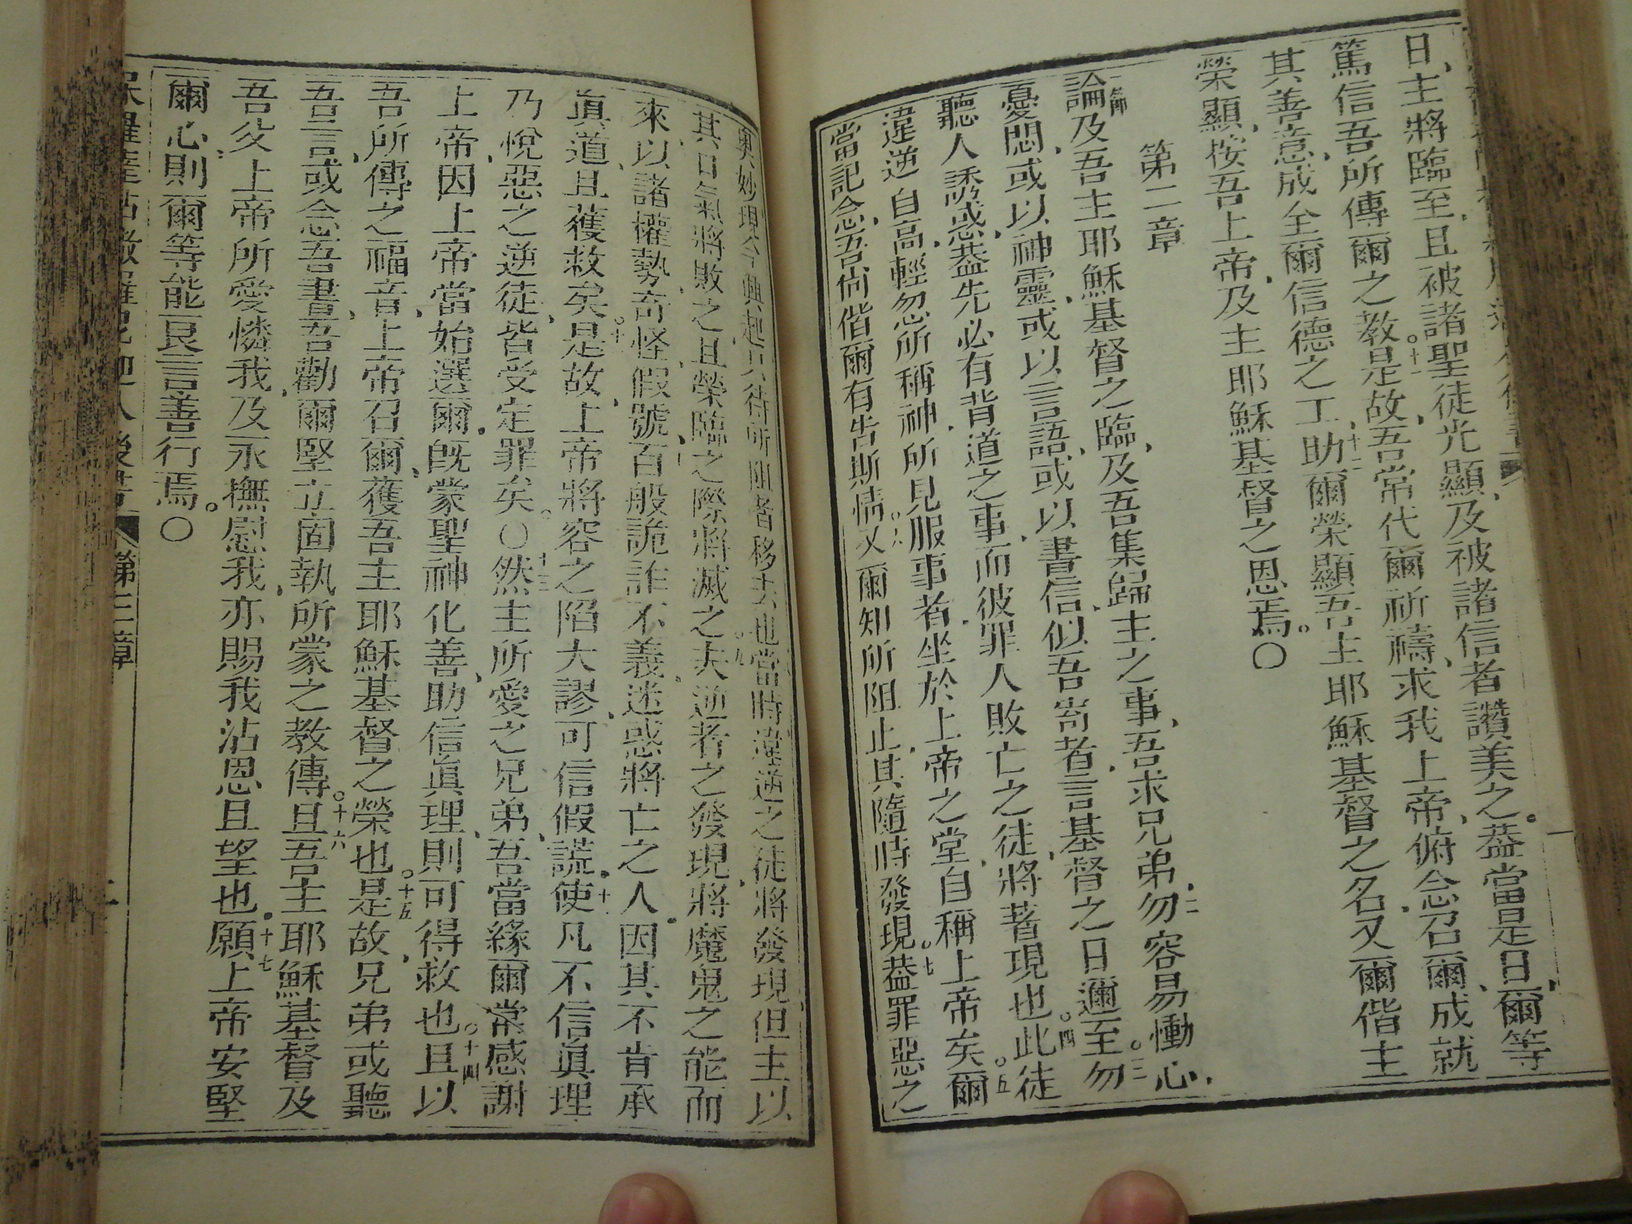 日、主將臨至、且被諸聖徒光顯、及被諸信者讚美之。蓋當是日、爾等
篤信吾所傳爾之教是故、吾常代爾祈禱、求我上帝、俯念召爾、成就
其善意、成全爾信德之工、助爾榮顯吾主耶穌基督之名、又爾偕主
榮顯、按吾上帝、及主耶穌基督之恩焉。〇
第二章
論及吾主耶穌基督之臨、及吾集歸主之事、吾求兄弟、勿容易慟心、
憂悶、或以神靈、或以言語、或以書信、似吾寄者、言基督之日邇至、勿
聽人誘惑、蓋先必有背道之事、而彼罪人敗亡之徒、將著現也、此徒
違逆、自高輕忽所稱神、所見服事者、坐於上帝之堂、自稱上帝矣、爾
當記念、吾尚偕爾、有告斯情、又爾知所阻止、其隨時發現、蓋罪惡之
奧妙理、今興起、只待所阻者移去也、當時違逆之徒、將發現、但主以
其口氣將敗之、且榮臨之際、將滅之、夫逆者之發現、將魔鬼之能而
來、以諸權勢、奇怪、假號、百般詭詐不義、迷惑將亡之人、因其不肯承
眞道、且獲救矣、是故、上帝將容之陷大謬、可信假謊、使凡不信眞理
乃悅惡之逆徒、皆受定罪矣。〇然主所愛之兄弟、吾當緣爾常感謝
上帝、因上帝當始選爾、旣蒙聖神化善、助信眞理、則可得救也、且以
吾所傳之福音、上帝召爾、獲吾主耶穌基督之榮也、是故、兄弟或聽
吾言、或念吾書、吾勸爾堅立、固執所蒙之教傳、且吾主耶穌基督、及
吾父上帝、所愛憐我、及永撫慰我、亦賜我沾恩且望也、願上帝安堅
爾心、則爾等能良言善行焉。〇
人後書 第三章